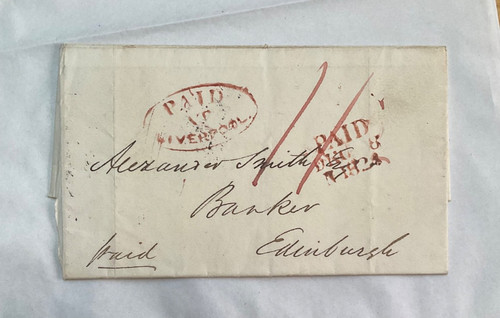 PAID
AT
LIVERPOOL
1/1
PAID
Alexander Smith
Banker
Edinburgh
paid